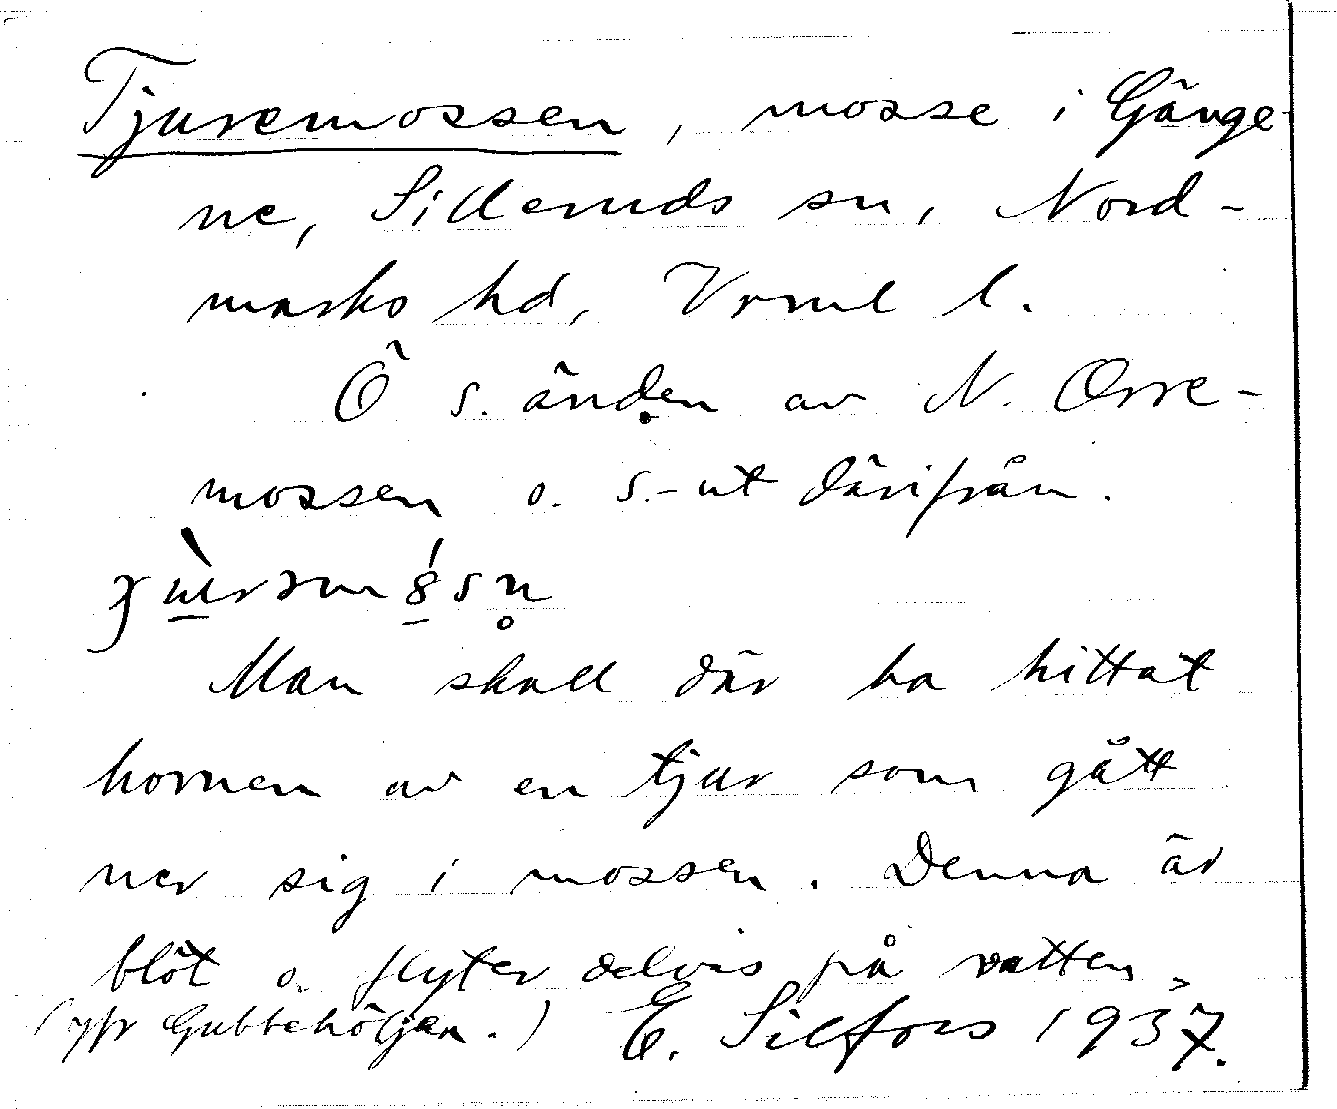 Tjuremossen, mosse i Gänge-
ne, Silleruds sn, Nord-
marks hd, Vrml l.
Ö s. änden av N. Orre-
mossen o. s.-ut därifrån.
Man skall där ha hittat
hornen av en tjur som gått
ner sig i mossen. Denna är
blöt o. flyter delvis på vatten.
(jfr Gubbehöljen.) E. Silfors 1937.